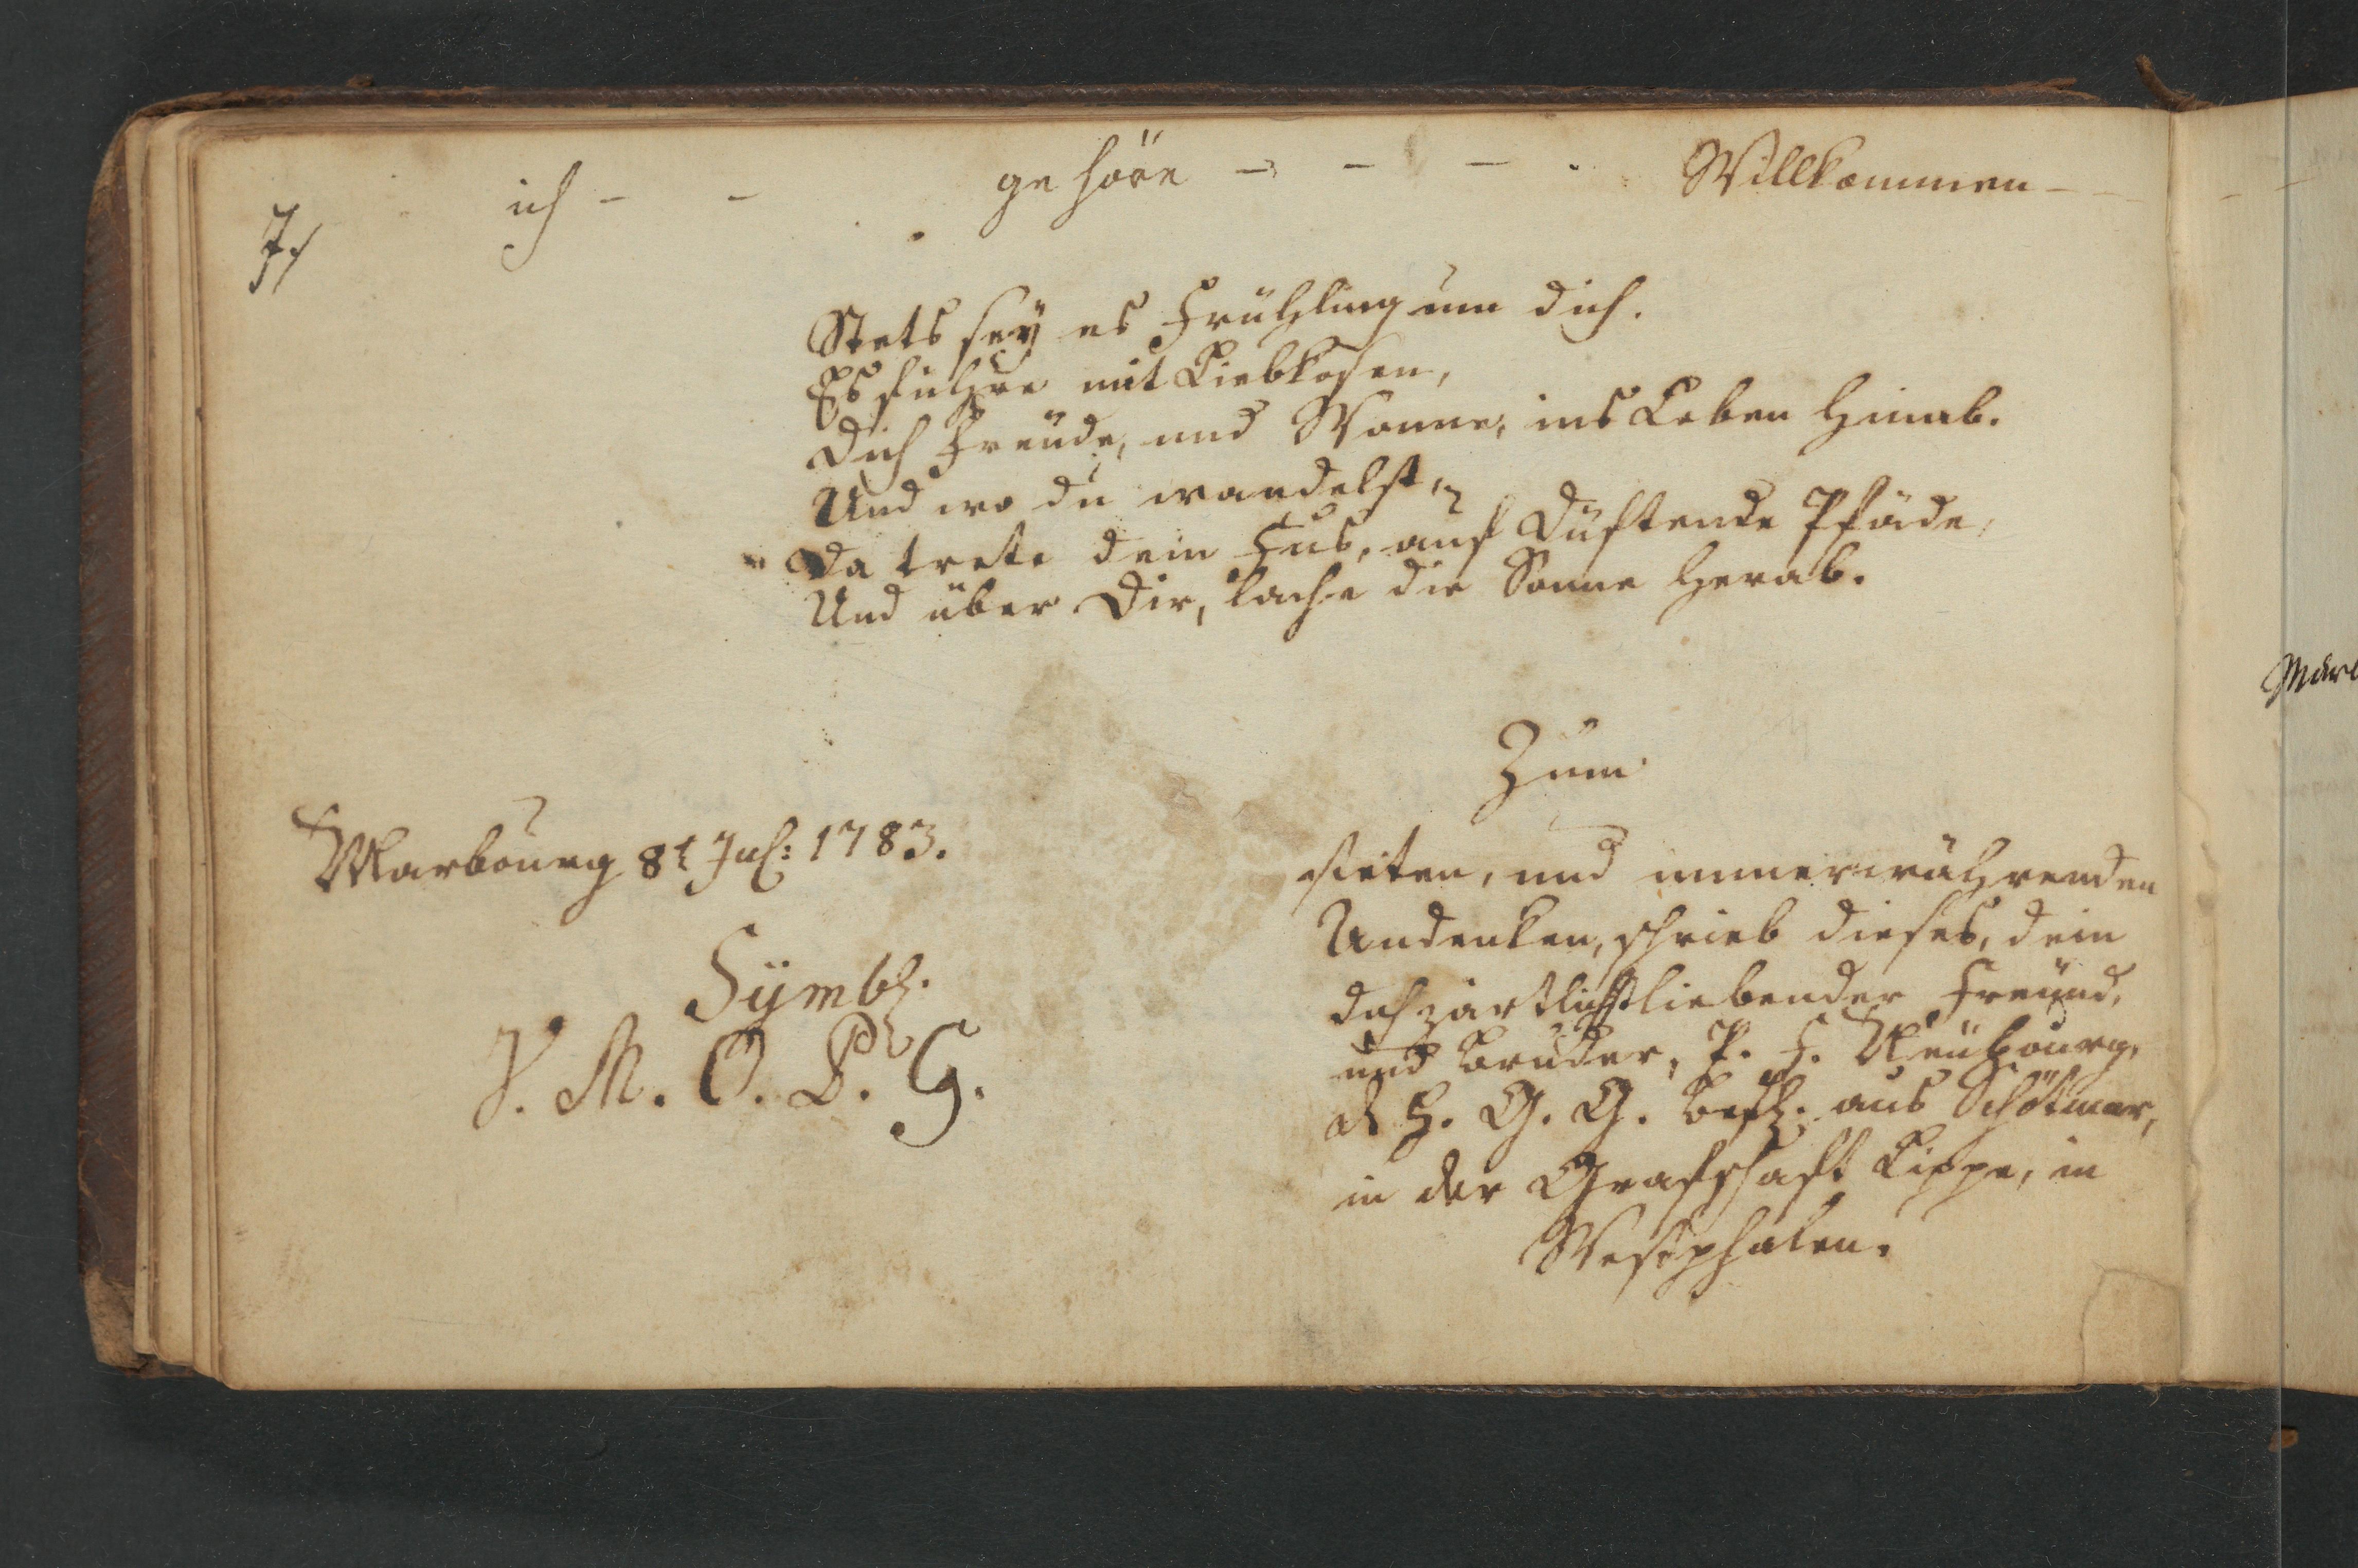 7/
ich - - gehöre - - - Willkommen - -
Stets seÿ es Frühling um dich.
Es führe mit Liebkosen,
dich Freude, und Wonne, ins Leben hinab.
Und wo du wandelst,
Da trete dein Fus, auf düftende Pfäde,
Und über Dir, lache die Sonne herab.
Zum
steten, und immerwährenden
Andenken, schrieb dieses, dein
dich zärtlichst liebender Freund,
und Bruder, P. F. Neubourg,
d. H. G. G. Befl. aus Schötmar,
in der Grafschaft Lippe, in
Westphalen.
Marbourg 8t Jul: 1783.
Sÿmbl.
V. M. O. P. G.
Marb